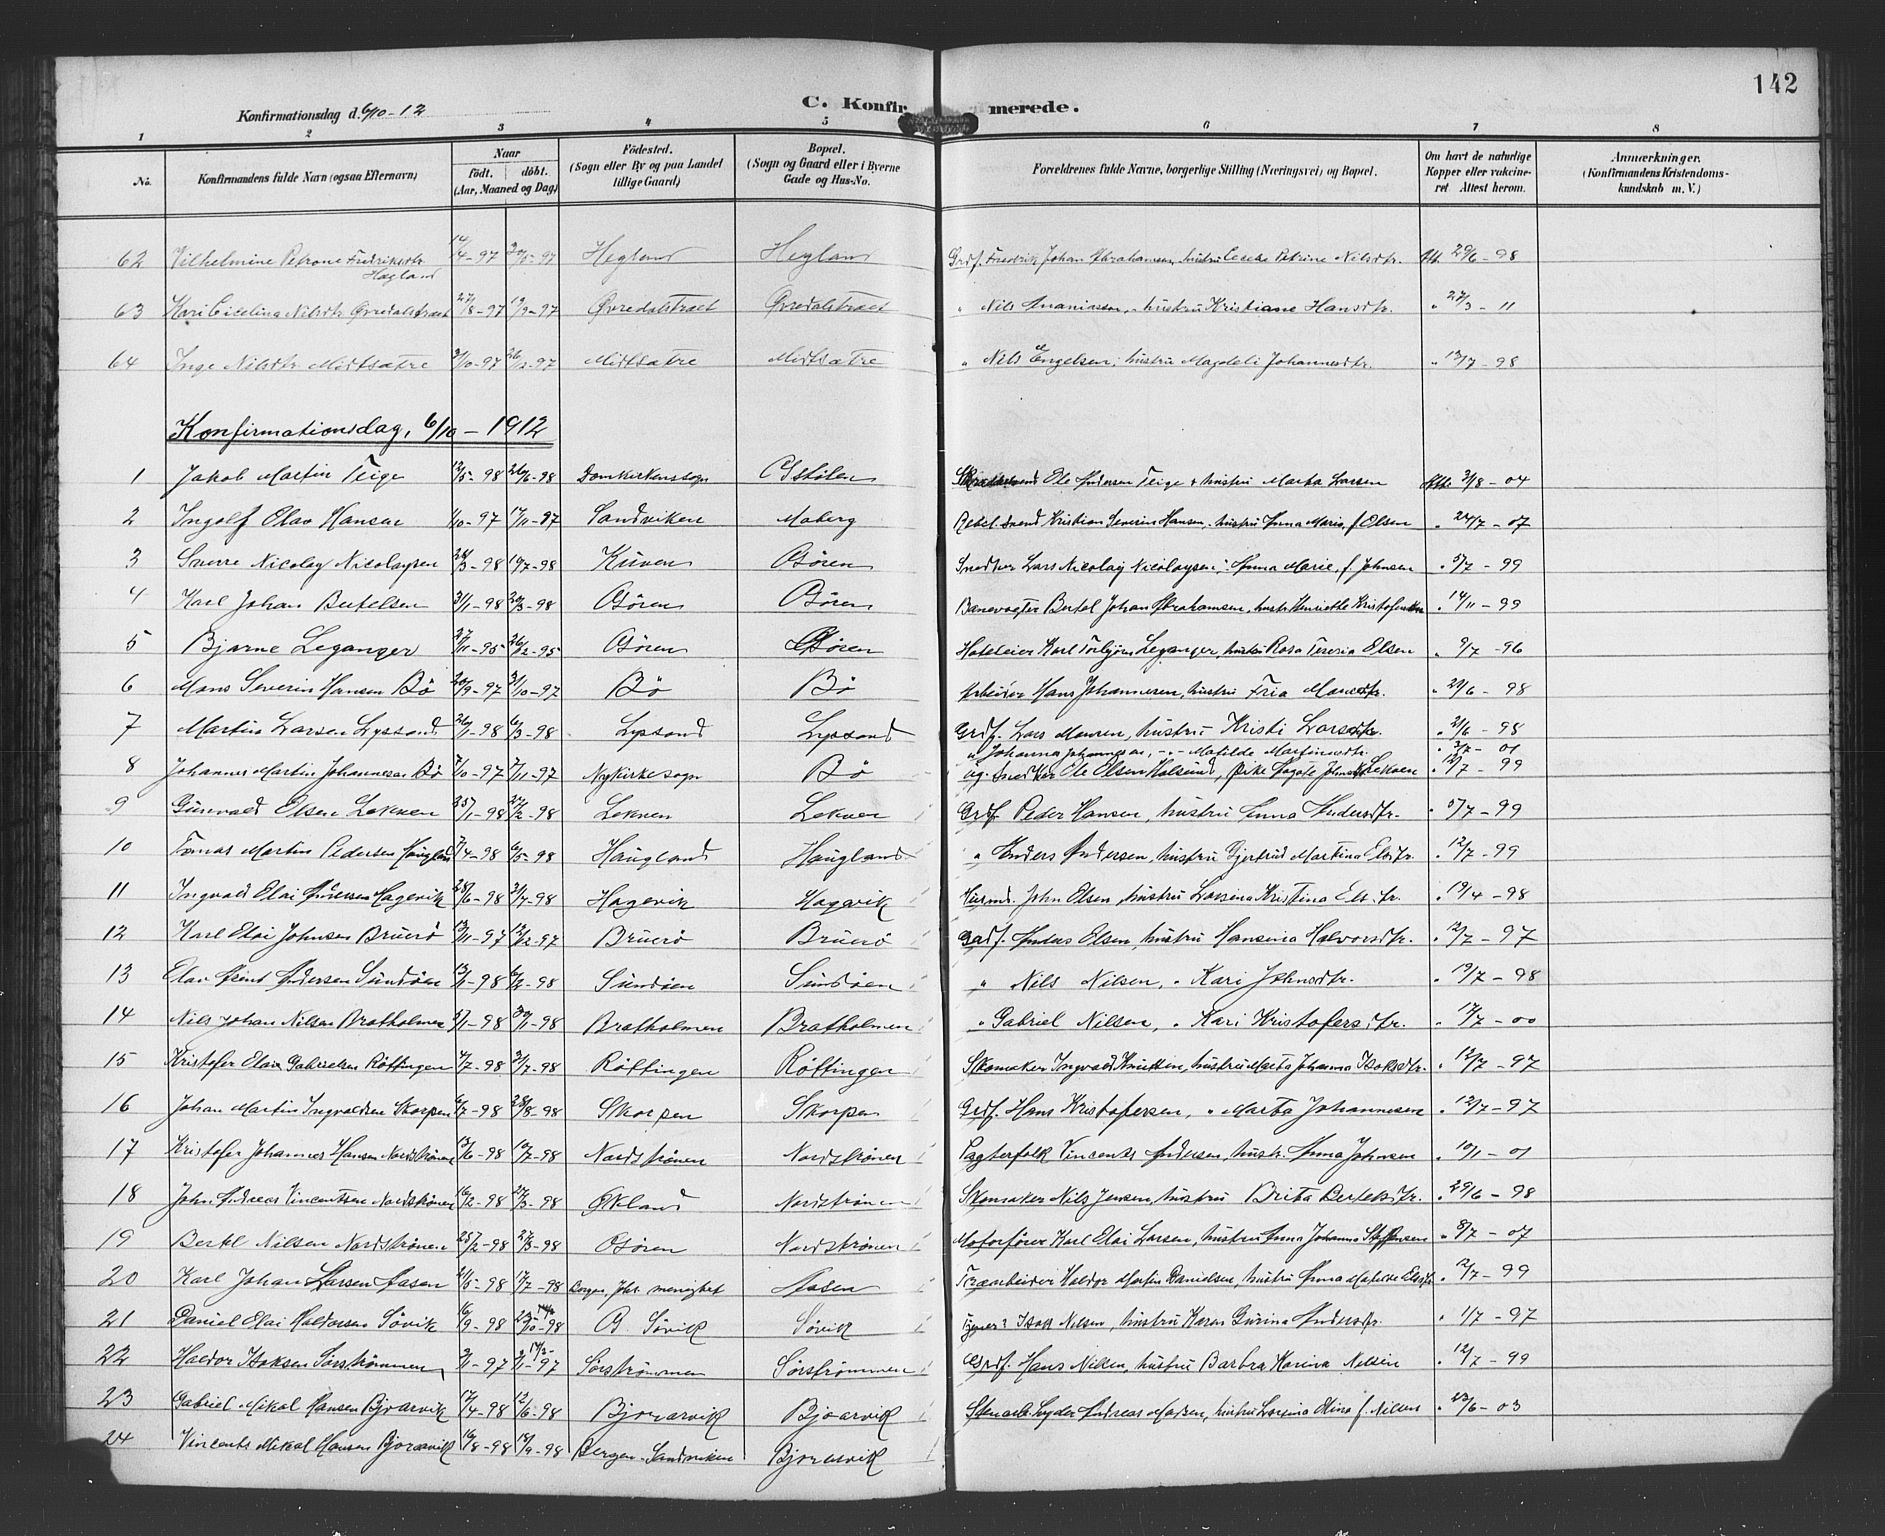 142
C. Konfirmerede.
Konfirmationsdag d. 6/10-12
1 2 3 4 5 6 7 8
No. Konfirmandens fulde Navn (ogsaa Efternavn) Naar født. døbt. (Aar, Maaned og Dag) Fødested. (Sogn eller By og paa Landet tillige Gaard) Bopæl. (Sogn og Gaard eller i Byerne Gade og Hus-No. Forældrenes fulde Navne, borgerlige Stilling (Næringsvei) og Bopæl. Om havt de naturlige Kopper eller vakcineret Attest herom. Anmærkninger. (Konfirmandens Kristendomskundskab m. V.)
62 Vilhelmine Petrone Fredriksdtr. Hegland 14/4-97 Hegland Hegland Grdf. Fredrik Johan Abrahamsen, hustru Petrine Nilsdtr. 29/6-98
63 Kari Nilsdtr. Øvredalstræet 27/8-97 19/9-97 Øvredalstræet Øvredalstræet " Nils Ananiassen, hustru Kristiane Hansdtr. " 27/3-11
64 Inge Nilsdtr Midtsætre 3/10-97 26/12-97 Midtsætre Midtsætre " Nils Engelsen, hustru Magdeli Johannesdtr. " 13/7-98
Konfirmationsdag, 6/10-1912
1 Jakob Martin Teige 12/5-98 26/6-98 Domkirkenssogn Ole Andersen Teige & hustru Marta Larsen 3/8-04
2 Ingolf Olav Hansen 1/10-97 17/11-97 Sandviken Moberg Kristian Severin Hansen, hustru Anna Marie, f. Olsen " 24/7-07
3 Sverre Nicolay Nicolaysen 28/3-98 10/7-98 Kuven Osøren Snedker Lars Nicolay Nicolaysen, Anna Marie, f. Johnsen " 5/7-99
4 Karl Johan Bertelsen 31/1-98 20/3-98 Osøren Osøren Banevogter Bertel Johan Abrahamsen, hustr. Henriette " 14/11-99
5 Bjarne Leganger 27/11-95 26/12-95 Osøren Osøren Hoteleier Karl Torbjørn Leganger, hustru Rosa Teresia Olsen " 9/7-96
6 Mons Severin Hansen Bø 20/9-97 31/10-97 Bø Bø Arbeider Hans Johannesen, hustru Monsdtr. " 29/6-98
7 Martin Larsen Lyssand 26/1-98 6/3-98 Lyssand Lyssand Grdf. Lars Monsen, hustru Kristi Larsdtr. " 2/6-98
8 Johannes Martin Johannesen Bø 7/10-97 7/11-97 Nykirkesogn Bø Johannesen, -"- Matilde Martinusdtr. -01
Snedker Ole Olsen Lekven " 12/7-99
9 Gunvald Olsen Lekven 25/1-98 27/2-98 Lekven Lekven Grdf. Peder Hansen, hustru Anna Andersdtr. " 5/7-99
10 Tomas Martin Pedersen Haugland 7/4-98 6/5-98 Haugland Haugland " Anders Andersen, hustru Gjertrud Martina Elsdtr. " 12/7-99
11 Ingvald Elai Andersen Hagevik 28/6-98 31/7-98 Hagevik Hagevik Husmd. John Olsen, hustru Larsina Kristina Elsdtr. " 19/4-98
12 Karl Elai Johnsen Bruerø 13/11-97 12/12-97 Bruerø Bruerø Grdf. Anders Olsen, hustru Hansina Halvorsdtr. " 12/7-97
13 Andersen Sundøen -98 Sundøen Sundøen " Nils Nilsen, " Kari Johnsdtr. " 19/7-98
14 Nils Johan Nilsen Bratholmen 5/1-98 30/1-98 Bratholmen Bratholmen " Gabriel Nilsen, " Kari Kristofersdtr. " 17/7-00
15 Kristofer Elai Gabrielsen Røttingen 4/7-98 31/7-98 Røttingen Røttingen Skomaker Ingvald Knutsen, hustru Marta Johanna Isaksdtr. " 12/7-97
16 Johan Martin Ingvaldsen Skorpen 6/7-98 28/8-98 Skorpen Skorpen Grdf. Hans Kristofersen, " Marta Johannesen " 12/7-97
17 Kristofer Johannes Hansen Nordstrønen 13/6-98 10/7-98 Nordstrønen Nordstrønen Pagterfolk Vincents Andersen, hustr. Anna Johnsen " 10/1-01
18 John Andreas Vincentsen Nordstrønen 16/2-98 27/3-98 Økland Nordstrønen Skomaker Nils Jensen, hustru Brita Bertelsdtr. " 29/6-98
19 Bertel Nilsen Nordstrønen 25/2-98 27/3-98 Osøren Nordstrønen Motorfører Karl Elai Larsen, hustru Anna Johanna Steffensen " 8/7-07
20 Karl Johan Larsen Aasen -98 17/7-98 Bergen, Joh. menighet Aasen Træarbeider Haldor Martin Danielsen, hustru Anna Matilde Elsdtr. " 12/7-99
21 Daniel Elai Haldorsen Søvik 16/9-98 -98 Søvik Søvik Isak Nilsen, hustru Karen Gurina Andersdtr. " 1/7-97
22 Haldor Isaksen Sørstrømmen 3/11-97 -97 Sørstrømmen Sørstrømmen Grdf. Hans Nilsen, hustru Barbra Karina Nilsen " 12/7-99
23 Gabriel Mikal Hansen Bjørarvik 17/4-98 12/6-98 Bjørarvik Bjoarvik Andreas Madsen, hustru Larsina Olina f. Nilsen " 23/6-03
24 Vincents Mikal Hansen Bjoraavik 16/8-98 18/9-98 Bergen, Sandviken Bjoraavik